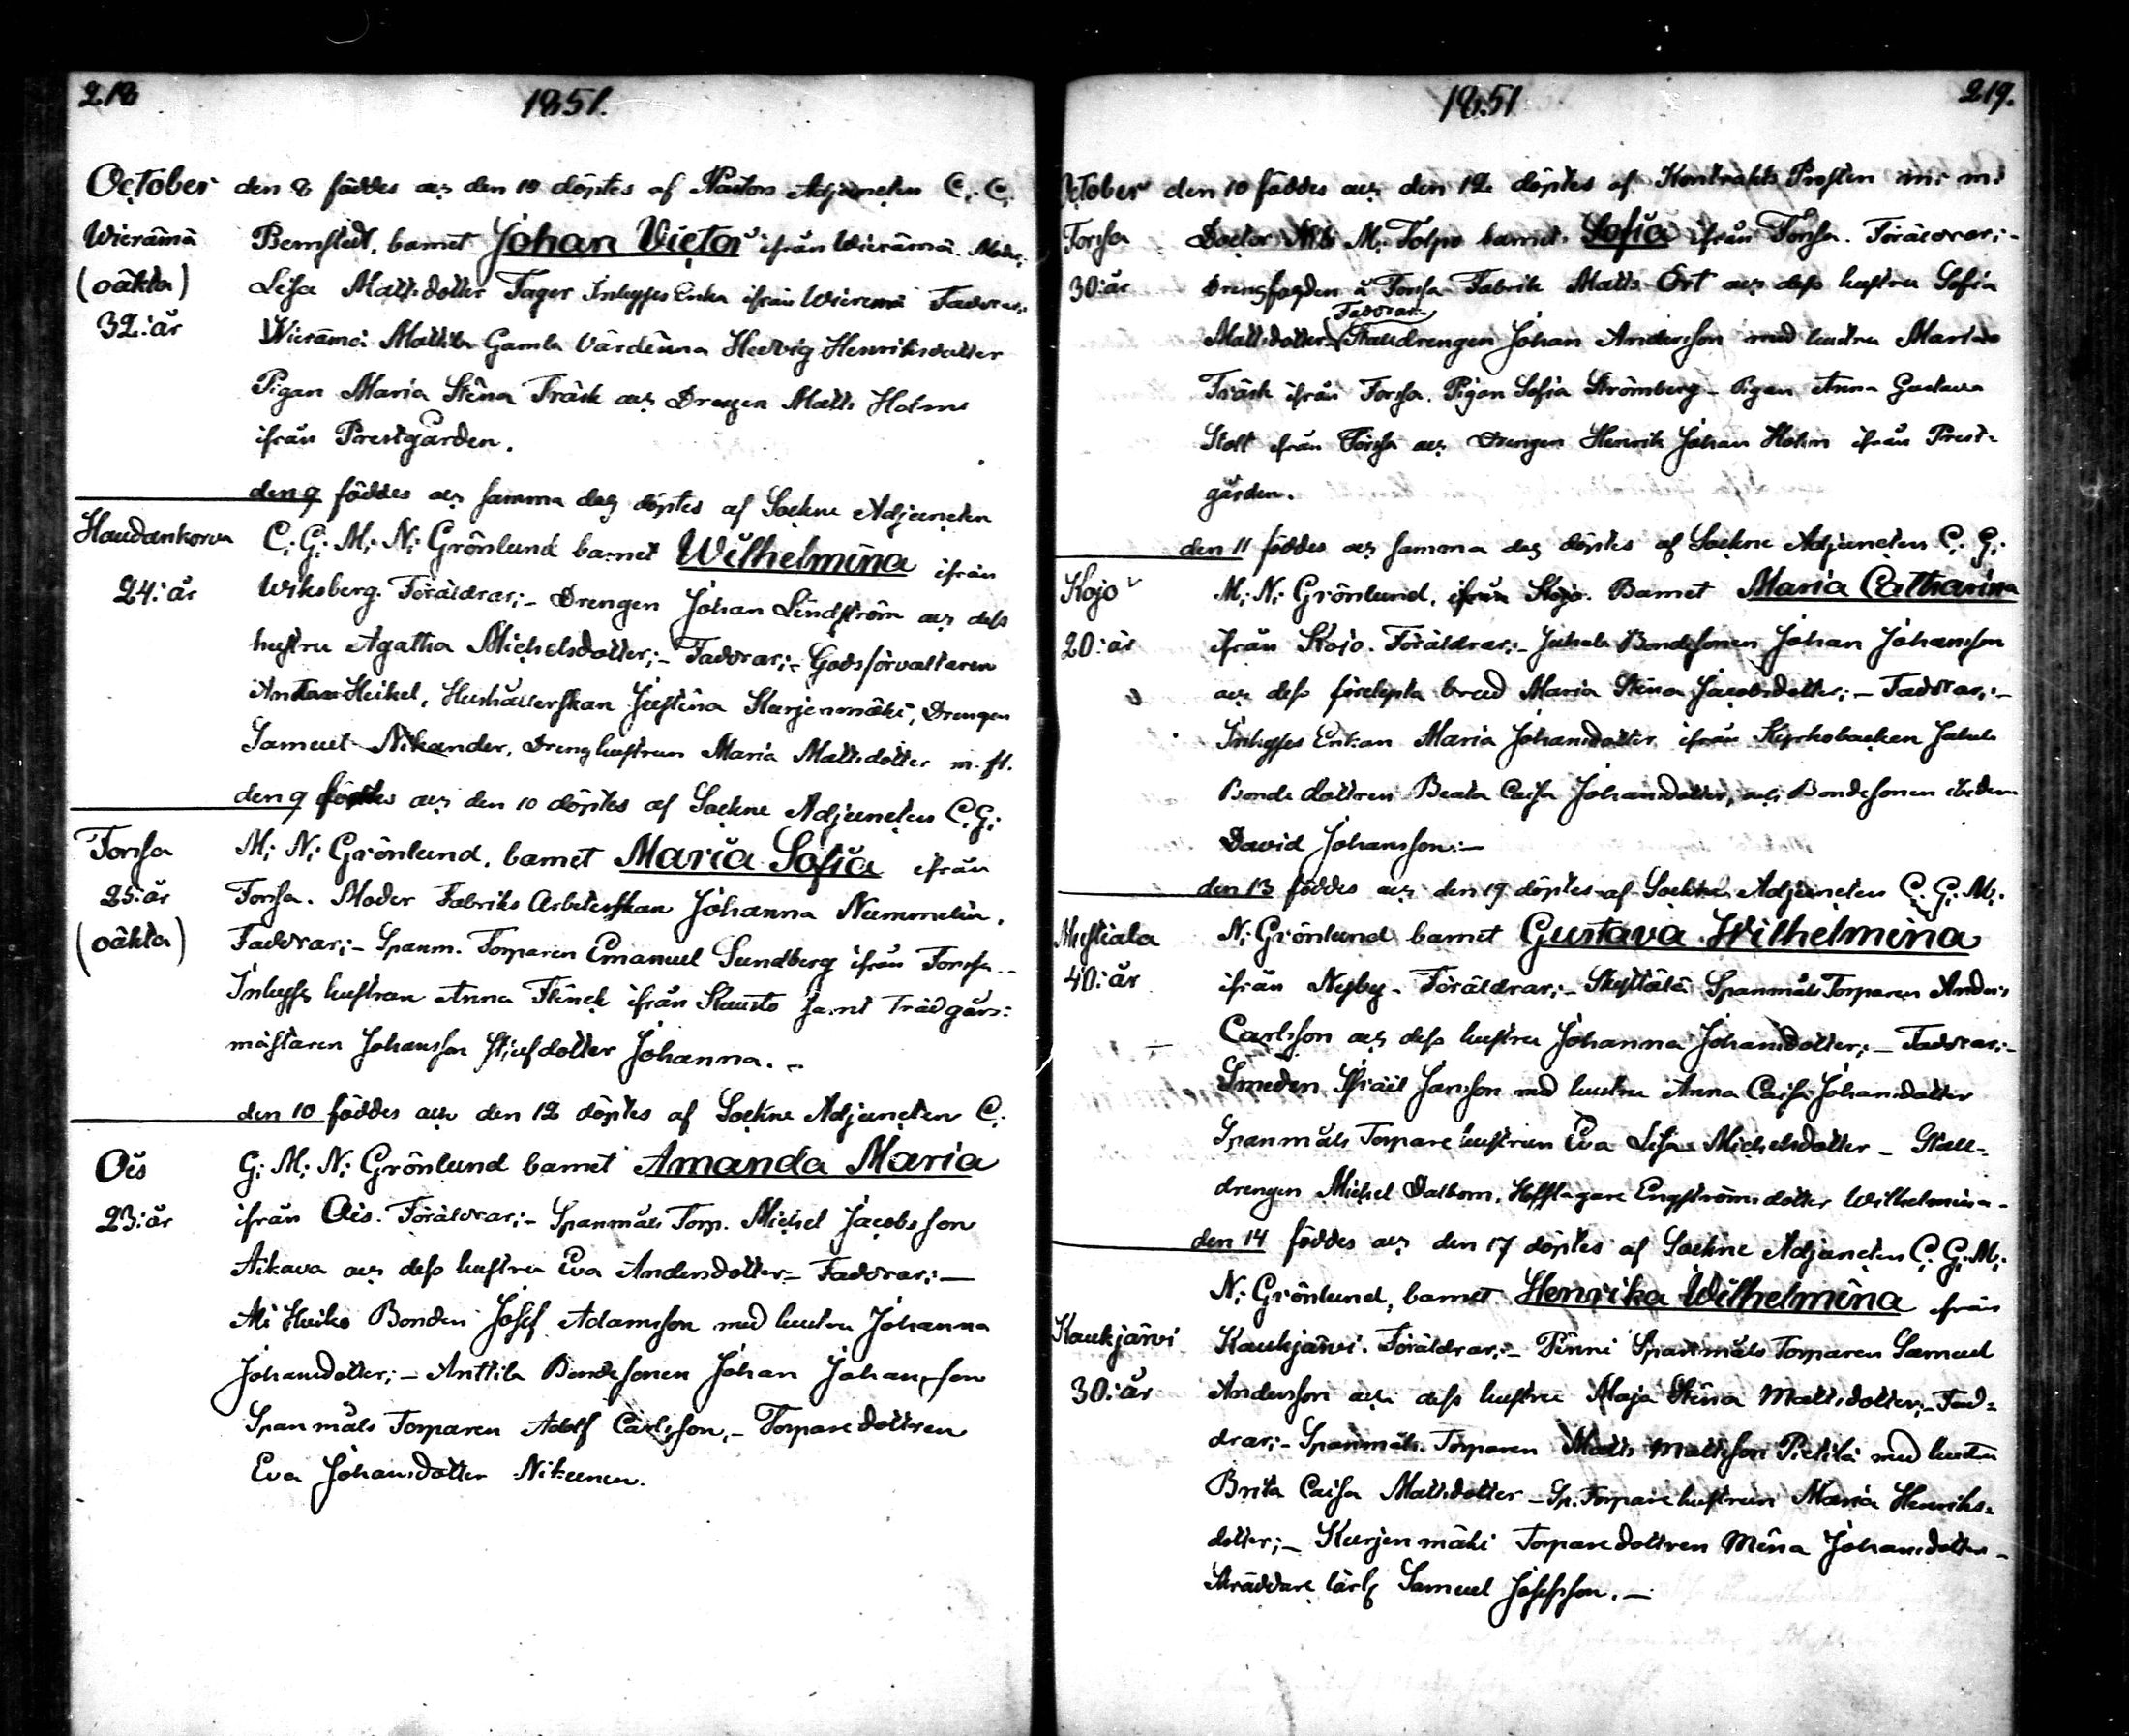 218
1851.
October den 8 föddes och den 10 döptes af Pastors Adjuncten C. C.
Wieremä Bernstedt, barnet Johan Victor ifrån Wieremä. Moder:
(oäkta) Lisa Mattsdotter Tager Inhyses Enka ifrån Wieremä Faddrar:
32: år Wieremä Mattila Gamla Värdinna Hedvig Henriksdotter
Pigan Maria Stina Träsk och Drengen Matts Holm
ifrån Prestgården.
den 9 föddes och samma dag döptes af Sockne Adjuncten
Haudankorva C: G: M: N: Grönlund barnet Wilhelmina ifrån
24: år Wiksberg. Föräldrar:- Drengen Johan Lindström och dess
hustru Agatha Michelsdotter;- Faddrar;- Godsförvaltaren
Heikel, Hushållerskan Justina Kurjenmäki, Drengen
Samuel Nikander, Dreng hustrun Maria Mattsdotter m. fl.
den 9 föddes och den 10 döptes af Sockne Adjuncten C. G:
Forssa M: N: Grönlund, barnet Maria Sofia ifrån
25: år Forssa. Moder Fabriks Arbeterskan Johanna Nummelin.
(oäkta) Faddrar;- Spanm. Torparen Emanuel Sundberg ifrån Forssa..
Inhyses hustrun Anna Flinck ifrån Kausto samt Trädgårs:
mästaren Johansson stjufdotter Johanna. -
den 10 föddes och den 12 döptes af Sockne Adjuncten C.
Ois G: M: N: Grönlund barnet Amanda Maria
23: år ifrån Ois. Föräldrar;- Spanmåls Torp. Michel Jacobsson
Aikava och dess hustru Eva Andersdotter- Faddrar;-
Ali Heiko Bonden Josef Adamsson med hustru Johanna
Johansdotter;- Anttila Bondesonen Johan Johansson
Spanmåls Torparen Adolf Carlsson,- Torparedottren
Eva Johansdotter Nikunen.
1851
219.
October den 10 föddes och den 12 döptes af Kontrakts Prosten m: m:
Forssa Doctor M: Tolpo barnet Sofia ifrån Forssa. Föräldrar;-
30: år Drengfogden å Forssa Fabrik Matts Ört och dess hustru Sofia
Faddrar:-
Mattsdotter- Stalldrengen Johan Andersson med hustru Maria
Träsk ifrån Forssa. Pigan Sofia Strömberg- Pigan Anna Gustava
Stolt ifrån Forssa och Drengen Henrik Johan Holm ifrån Prest-
gården.
den 11 föddes och samma dag döptes af Sockne Adjuncten C. G:
Kojo M: N: Grönlund, ifrån Kojo. Barnet Maria Catharina
20: år ifrån Kojo. Föräldrar;- Juhala Bondesonen Johan Johansson
och dess förelepta brud Maria Stina Jacobsdotter;- Faddrar;-
Inhyses Enkan Maria Johansdotter ifrån Kyrkobacken
Bonde dottren Beata Caisa Johansdotter, och Bondesonen ibidem
David Johansson:-
den 13 föddes och den 19 döptes af Sockne Adjuncten C. G: M:
Mustiala N: Grönlund barnet Gustava Wilhelmina
40: år ifrån Nyby- Föräldrar;- Skyttälä Spanmåls Torparen Anders
Carlsson och dess hustru Johanna Johansdotter;- Faddrar;-
Smeden Israel Jansson med hustru Anna Caisa Johansdotter
Spanmåls Torpare hustrun Eva Lisa Michelsdotter- Stall-
drengen Michel Dalbom, Hofslagare Engströms dotter Wilhelmina-
den 14 föddes och den 17 döptes af Sockne Adjuncten C. G: M:
N: Grönlund, barnet Henrika Wilhelmina ifrån
Kaukjärvi Kaukjärvi. Föräldrar;- Pinni Spanmåls Torparen Samuel
30: år Andersson och dess hustru Maja Stina Mattsdotter;- Fad-
drar;- Spanmåls Torparen Matts Mattsson Pietilä med hustru
Brita Caisa Mattsdotter- Sp. Torpare hustrun Maria Henriks-
dotter;- Kurjenmäki Torparedottren Mina Johansdotter-
Skräddare lärl Samuel Josefsson.-